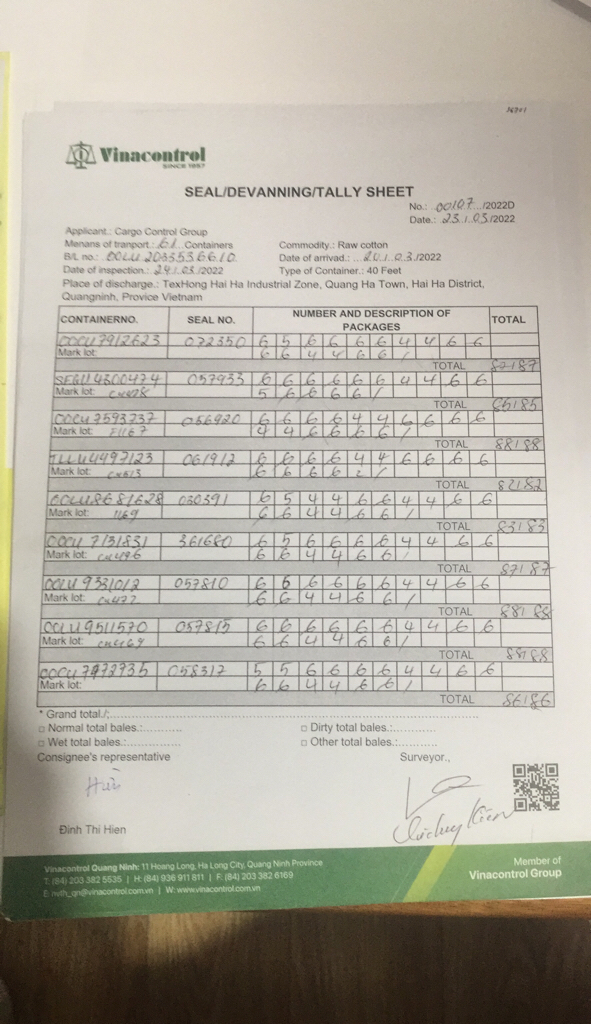 Vinacontrol
SINCE 1957
SEAL/DEVANNING/TALLY SHEET
No.: 00107 /2022D
Date.: 23.1.03/2022
Applicant.: Cargo Control Group
Menans of tranport.: 61 Containers
Commodity.: Raw cotton
B/L no.: OOLU 2033536610
Date of arrivad.: 20.1.03./2022
Date of inspection.: 24.1.03./2022
Type of Container.: 40 Feet
Place of discharge.: TexHong Hai Ha Industrial Zone, Quang Ha Town, Hai Ha District,
Quangninh, Provice Vietnam
CONTAINERNO. SEAL NO. NUMBER AND DESCRIPTION OF PACKAGES TOTAL
072350 6 5 6 6 6 6 4 4 6 6
Mark lot: 6 6 4 4 6 6 /
TOTAL 87187
SEGU4300474 057933 6 6 6 6 6 6 4 4 6 6
Mark lot: 5 6 6 6 6 /
TOTAL 85185
7593737 056920 6 6 6 6 4 4 6 6 6 6
Mark lot: 4 4 6 6 6 6 /
TOTAL 88188
4497123 061912 6 6 6 6 4 4 6 6 6 6
Mark lot: 6 6 6 6 2 /
TOTAL 82182
030391 6 5 4 4 6 6 4 4 6 6
Mark lot: 1169 6 6 4 4 6 6 /
TOTAL 83183
7131831 361680 6 5 6 6 6 6 4 4 6 6
Mark lot: 6 6 4 4 6 6 /
TOTAL 87187
057810 6 6 6 6 6 6 4 4 6 6
Mark lot: 6 6 4 4 6 6 /
TOTAL 88188
9511570 057815 6 6 6 6 6 6 4 4 6 6
Mark lot: 6 6 4 4 6 6 /
TOTAL 88188
058312 5 5 6 6 6 6 4 4 6 6
Mark lot: 6 6 4 4 6 6 /
TOTAL 86186
* Grand total./:
Normal total bales.: Dirty total bales.:
Wet total bales.: Other total bales.:
Consignee's representative Surveyor.,
Hiền
Đinh Thi Hien
Vinacontrol Quang Ninh: 11 Hoang Long, Ha Long City, Quang Ninh Province
T: (84) 203 382 5535 | H: (84) 936 911 811 | F: (84) 203 382 6169
E: nvth_qn@vinacontrol.com.vn | W: www.vinacontrol.com.vn
Member of
Vinacontrol Group